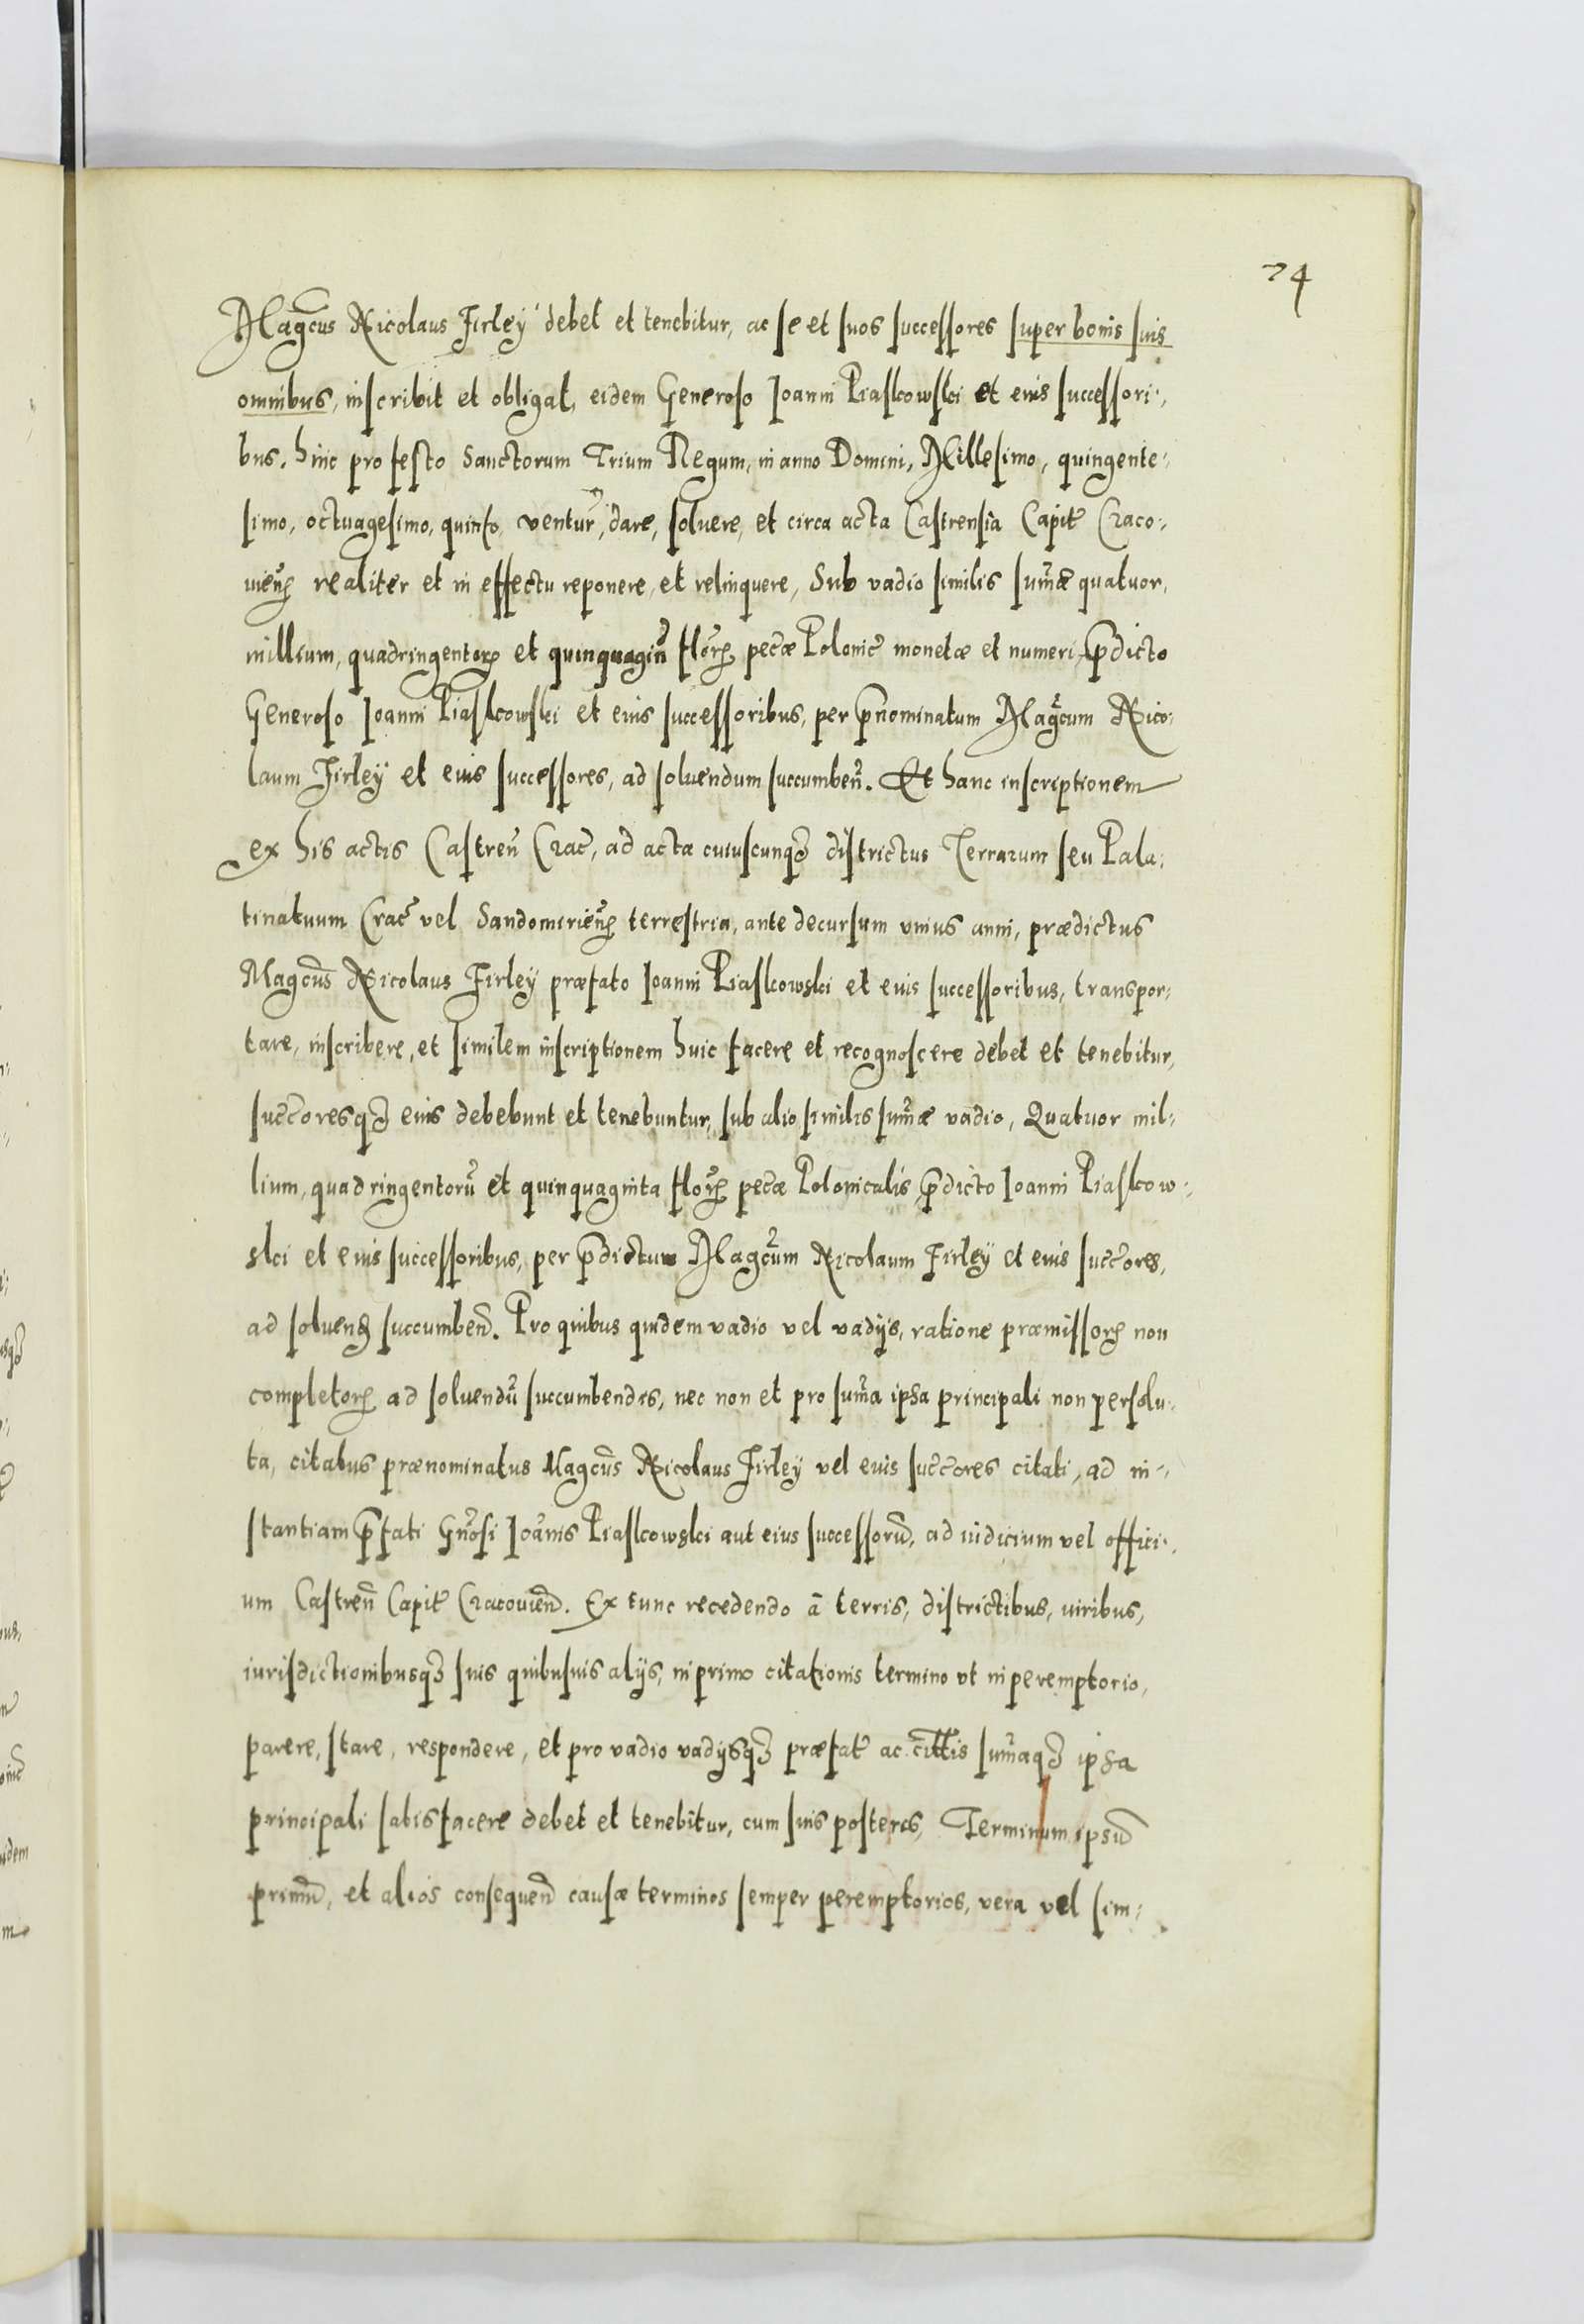 24
Magcus Nicolaus Firleÿ debet et tenebitur, ac se et suos successores super bonis suis
omnibus, inscribit et obligat, eidem Generoso Ioanni Piaskowski et eius successori-,
bus. hinc pro festo Sanctorum Trium Regum, in anno Domini, Millesimo, quingente-
simo, octuagesimo, quinto ventur̃, dare, soluere, et circa acta Castrensia Capit̃ Craco-,
uieñ realiter et in effectu reponere, et relinquere, Sub vadio similis sum̃æ quatuor,
millium, quadringentoꝝ et quinquagiñ floꝝ pecæ Polonic̃ monetæ et numeri, p̃dicto
Generoso Ioanni Piaskowski et eius successoribus, per p̃nominatum Magcum Nico-
laum Firleÿ et eius successores, ad soluendum succumbeñ. Et hanc inscriptionem
ex his actis Castreñ Crac̃, ad acta cuiuscunqꝫ districtus Terrarum seu Pala-
tinatuum Crac̃ vel Sandomirieñ terrestria, ante decursum vnius anni, prædictus
Magcus Nicolaus Firleÿ præfato Ioanni Piaskowski et eius successoribus, transpor-
tare, inscribere, et similem inscriptionem huic facere et recognoscere debet et tenebitur,
succ̃oresqꝫ eius debebunt et tenebuntur, sub alio similis sum̃æ vadio, Quatuor mil-
lium, quadringentorũ et quinquaginta floꝝ pecæ Polonicalis, p̃dicto Ioanni Piaskow-,
ski et eius successoribus, per p̃dictum Magcum Nicolaum Firleÿ et eius succ̃ores,
ad soluenđ succumbenđ. Pro quibus quidem vadio vel vadijs, ratione præmissoꝝ non
completoꝝ ad soluendũ succumbendis, nec non et pro sum̃a ipsa principali non persolu-
ta, citatus prænominatus Magcus Nicolaus Firleÿ vel eius succ̃ores citati, ad in-
stantiam p̃fati Gñosi Ioãnis Piaskowski aut eius successorũ, ad iudicium vel offici-,
um Castreñ Capit̃ Cracouienđ. Ex tunc recedendo à terris, districtibus, viribus,
iurisdictionibusqꝫ suis quibusuis alijs, in primo citationis termino vt in peremptorio,
parere, stare, respondere, et pro vadio vadijsqꝫ præfat̃ ac citt̃is sum̃aqꝫ ipsa
principali satisfacere debet et tenebitur, cum suis posteris, Terminum ipsũ
primũ, et alios consequenđ causæ terminos semper peremptorios, vera vel sim-,